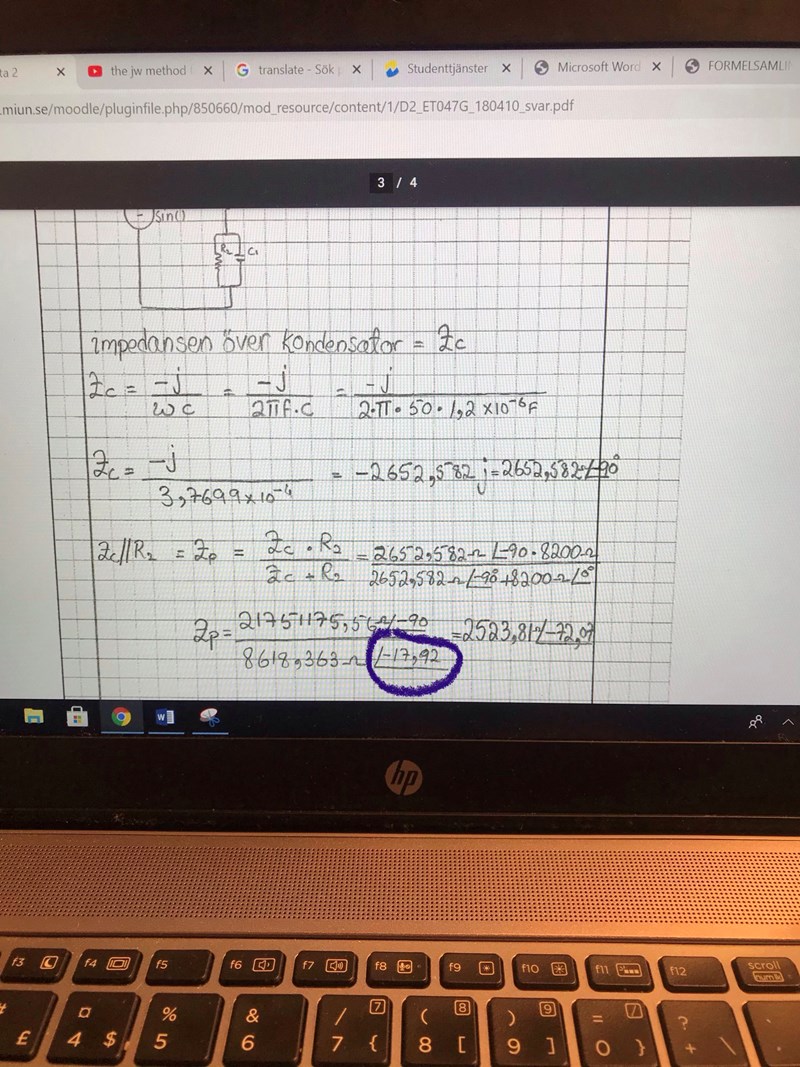 ta 2 × the jw method × translate - Sök × Studenttjänster × Microsoft Word × FORMELSAMLI
.miun.se/moodle/pluginfile.php/850660/mod_resource/content/1/D2_ET047G_180410_svar.pdf
3 / 4
sin()
R₂ C₁
impedansen över kondensator = Zc
Zc = -j / wc = -j / 2πf·C = -j / 2·π·50·1,2×10⁻⁶F
Zc = -j / 3,7699×10⁻⁴ = -2652,582 j = 2652,582∠-90°
Zc//R₂ = Zp = Zc·R₂ / Zc+R₂ = 2652,582Ω∠-90·8200Ω / 2652,582Ω∠-90°+8200Ω∠0°
Zp = 21751175,56∠-90 / 8618,363Ω∠-17,92 = 2523,81∠-72,07
hp
f3 f4 f5 f6 f7 f8 f9 f10 f11 f12 scroll
num lk
7 8 9 /
£ ¤ 4 $ % 5 & 6 / 7 { ( 8 [ ) 9 ] = 0 } ? + \